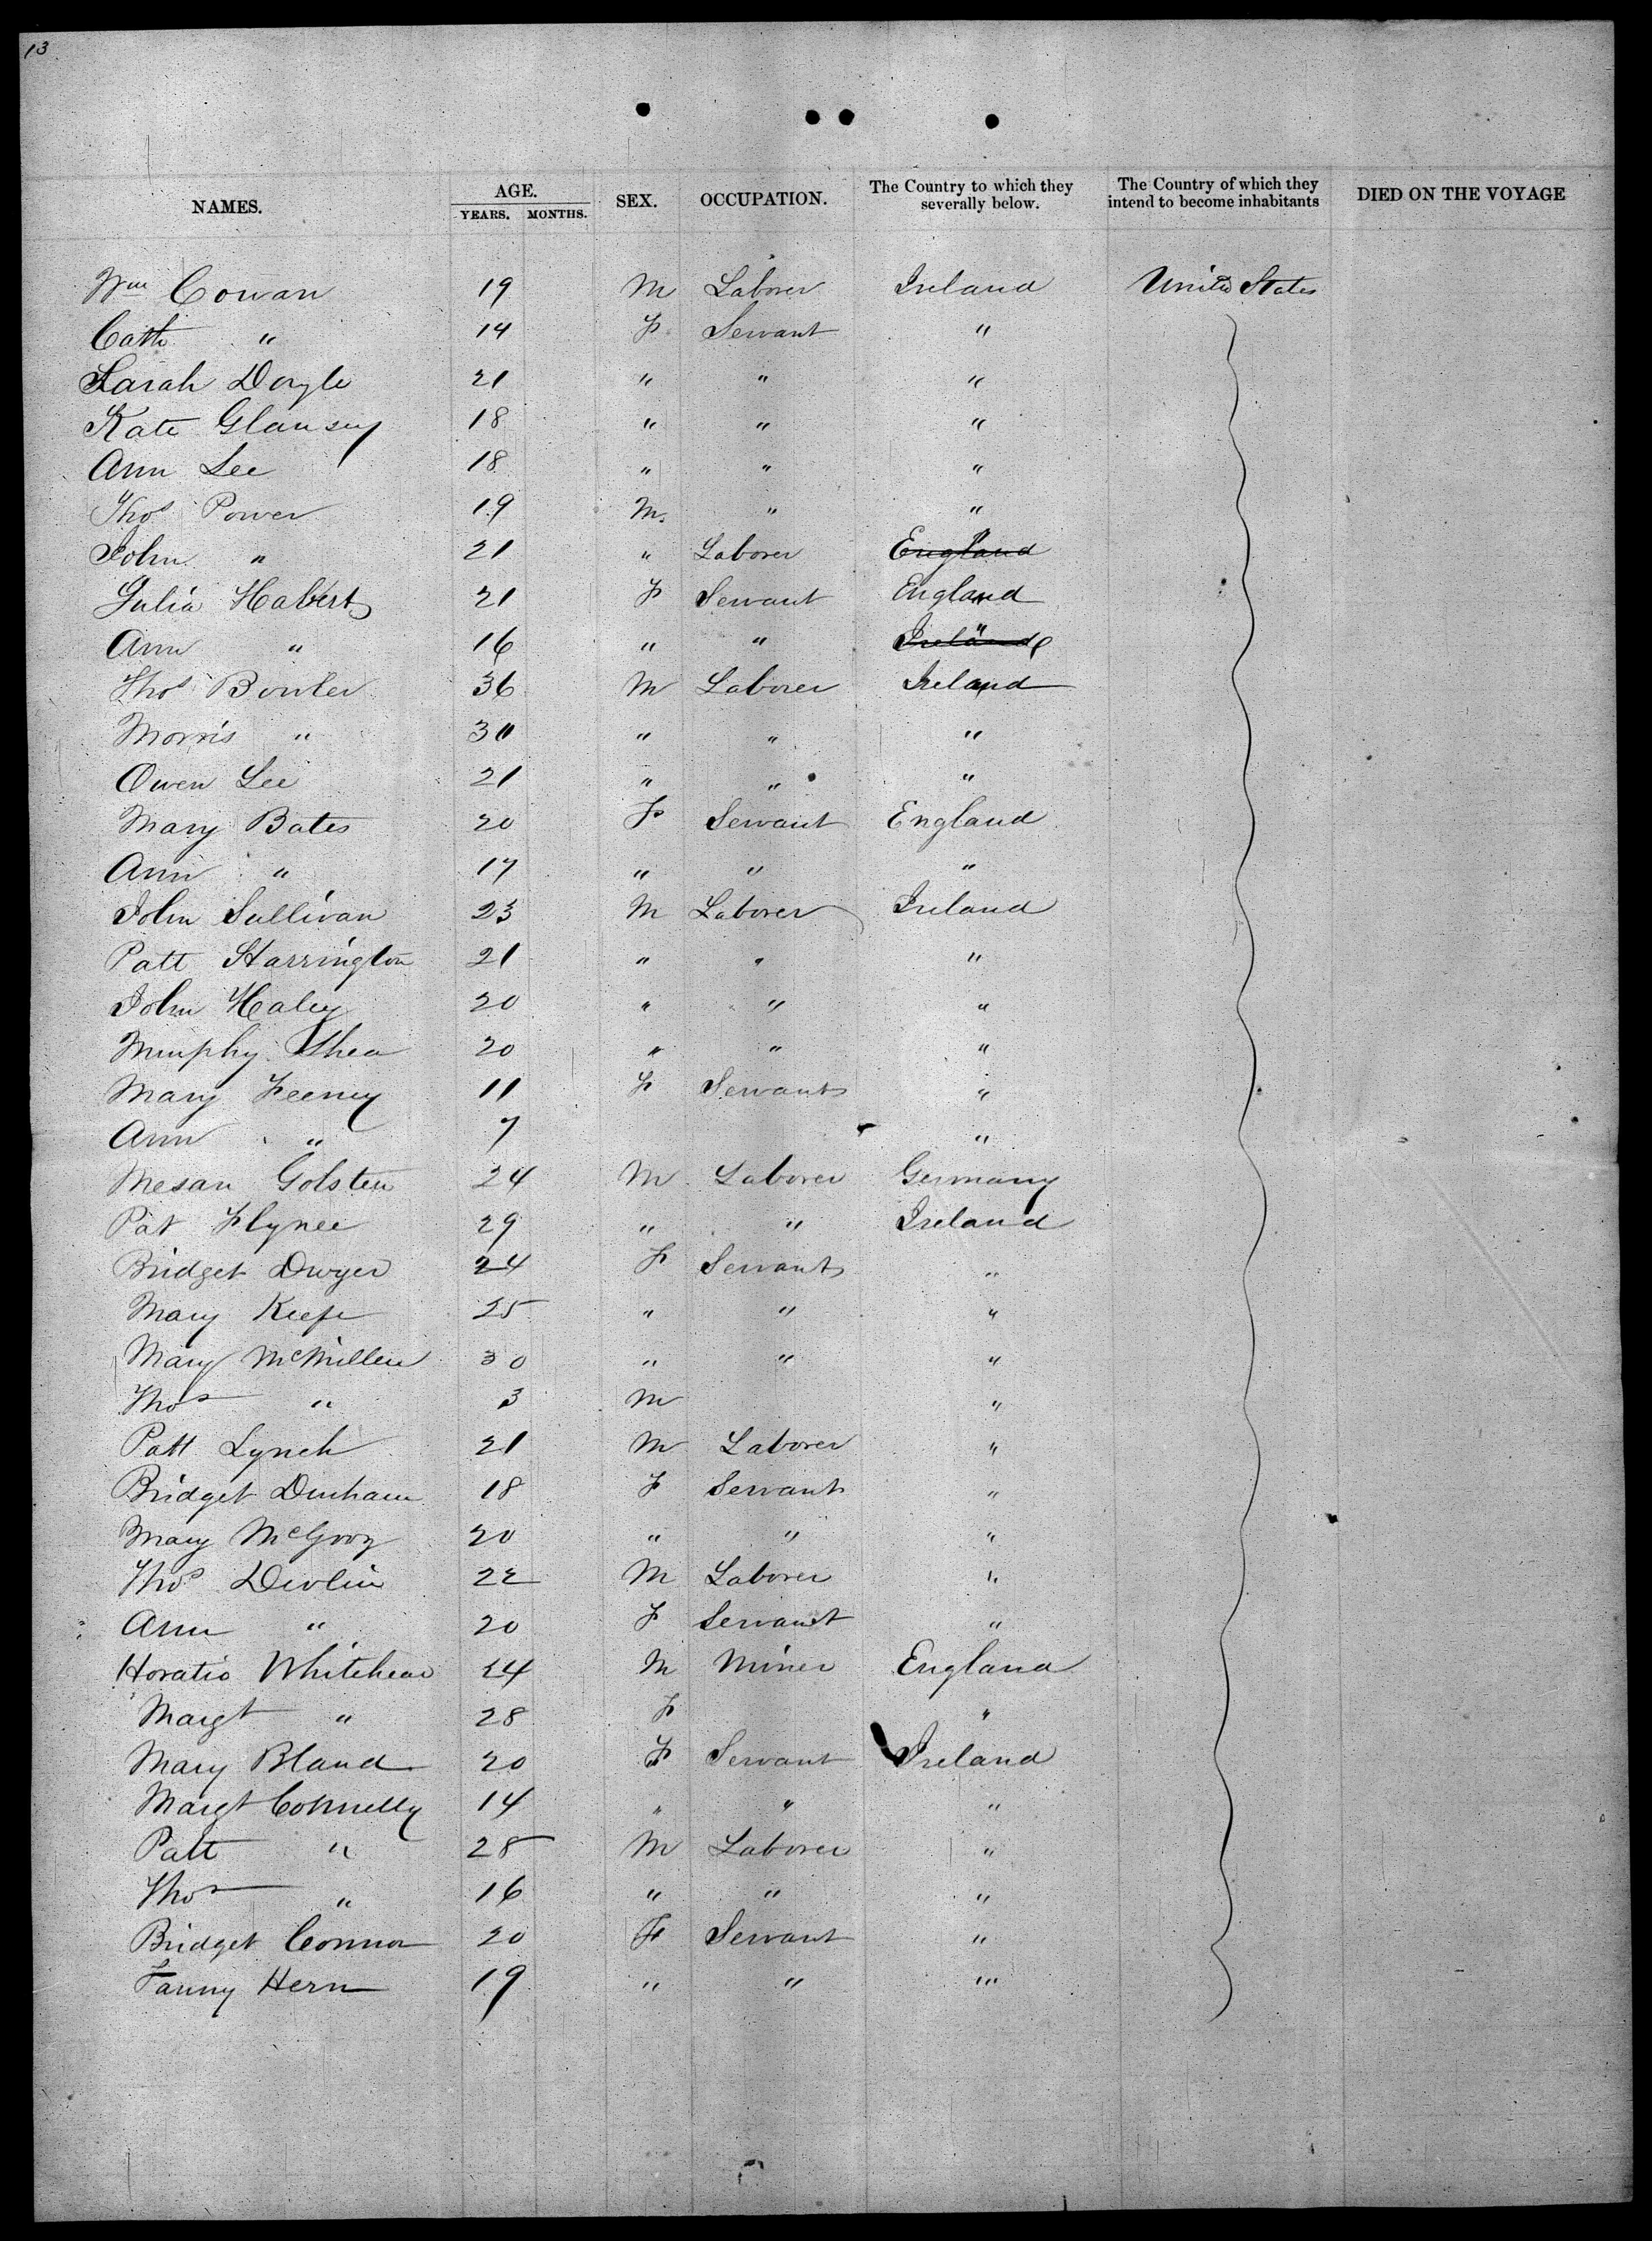 13
NAMES. AGE. YEARS. MONTHS. SEX. OCCUPATION. The Country to which they severally below. The Country of which they intend to become inhabitants DIED ON THE VOYAGE
Wm Cowan 19 M Laborer Ireland United States
Cath " 14 F Servant "
Sarah Doyle 21 " " "
Kate Glansey 18 " " "
Ann Lee 18 " " "
Thos Power 19 M. " "
John " 21 " Laborer England
Julia Haberts 21 F Servant England
Ann " 16 " " Ireland
Thos Bowler 36 M Laborer Ireland
Morris " 30 " " "
Owen Lee 21 " " "
Mary Bates 20 F Servant England
Ann " 17 " " "
John Sullivan 23 M Laborer Ireland
Patt Harrington 21 " " "
John Haley 20 " " "
Murphy Shea 20 " " "
Mary Feeney 11 F Servant "
Ann " 7 "
Mesan Golsten 24 M Laborer Germany
Pat Flynee 29 " " Ireland
Bridget Dwyer 24 F Servant "
Mary Keefe 25 " " "
Mary McMillen 30 " " "
Thos " 3 M "
Patt Lynch 21 M Laborer "
Bridget Durham 18 F Servant "
Mary McGroy 20 " " "
Thos Devlin 22 M Laborer "
Ann " 20 F Servant "
Horatio Whitehead 24 M Miner England
Margt " 28 F "
Mary Bland 20 F Servant Ireland
Margt Connelly 14 " " "
Patt " 25 M Laborer "
Thos " 16 " " "
Bridget Connor 20 F Servant "
Fanny Hern 19 " " "